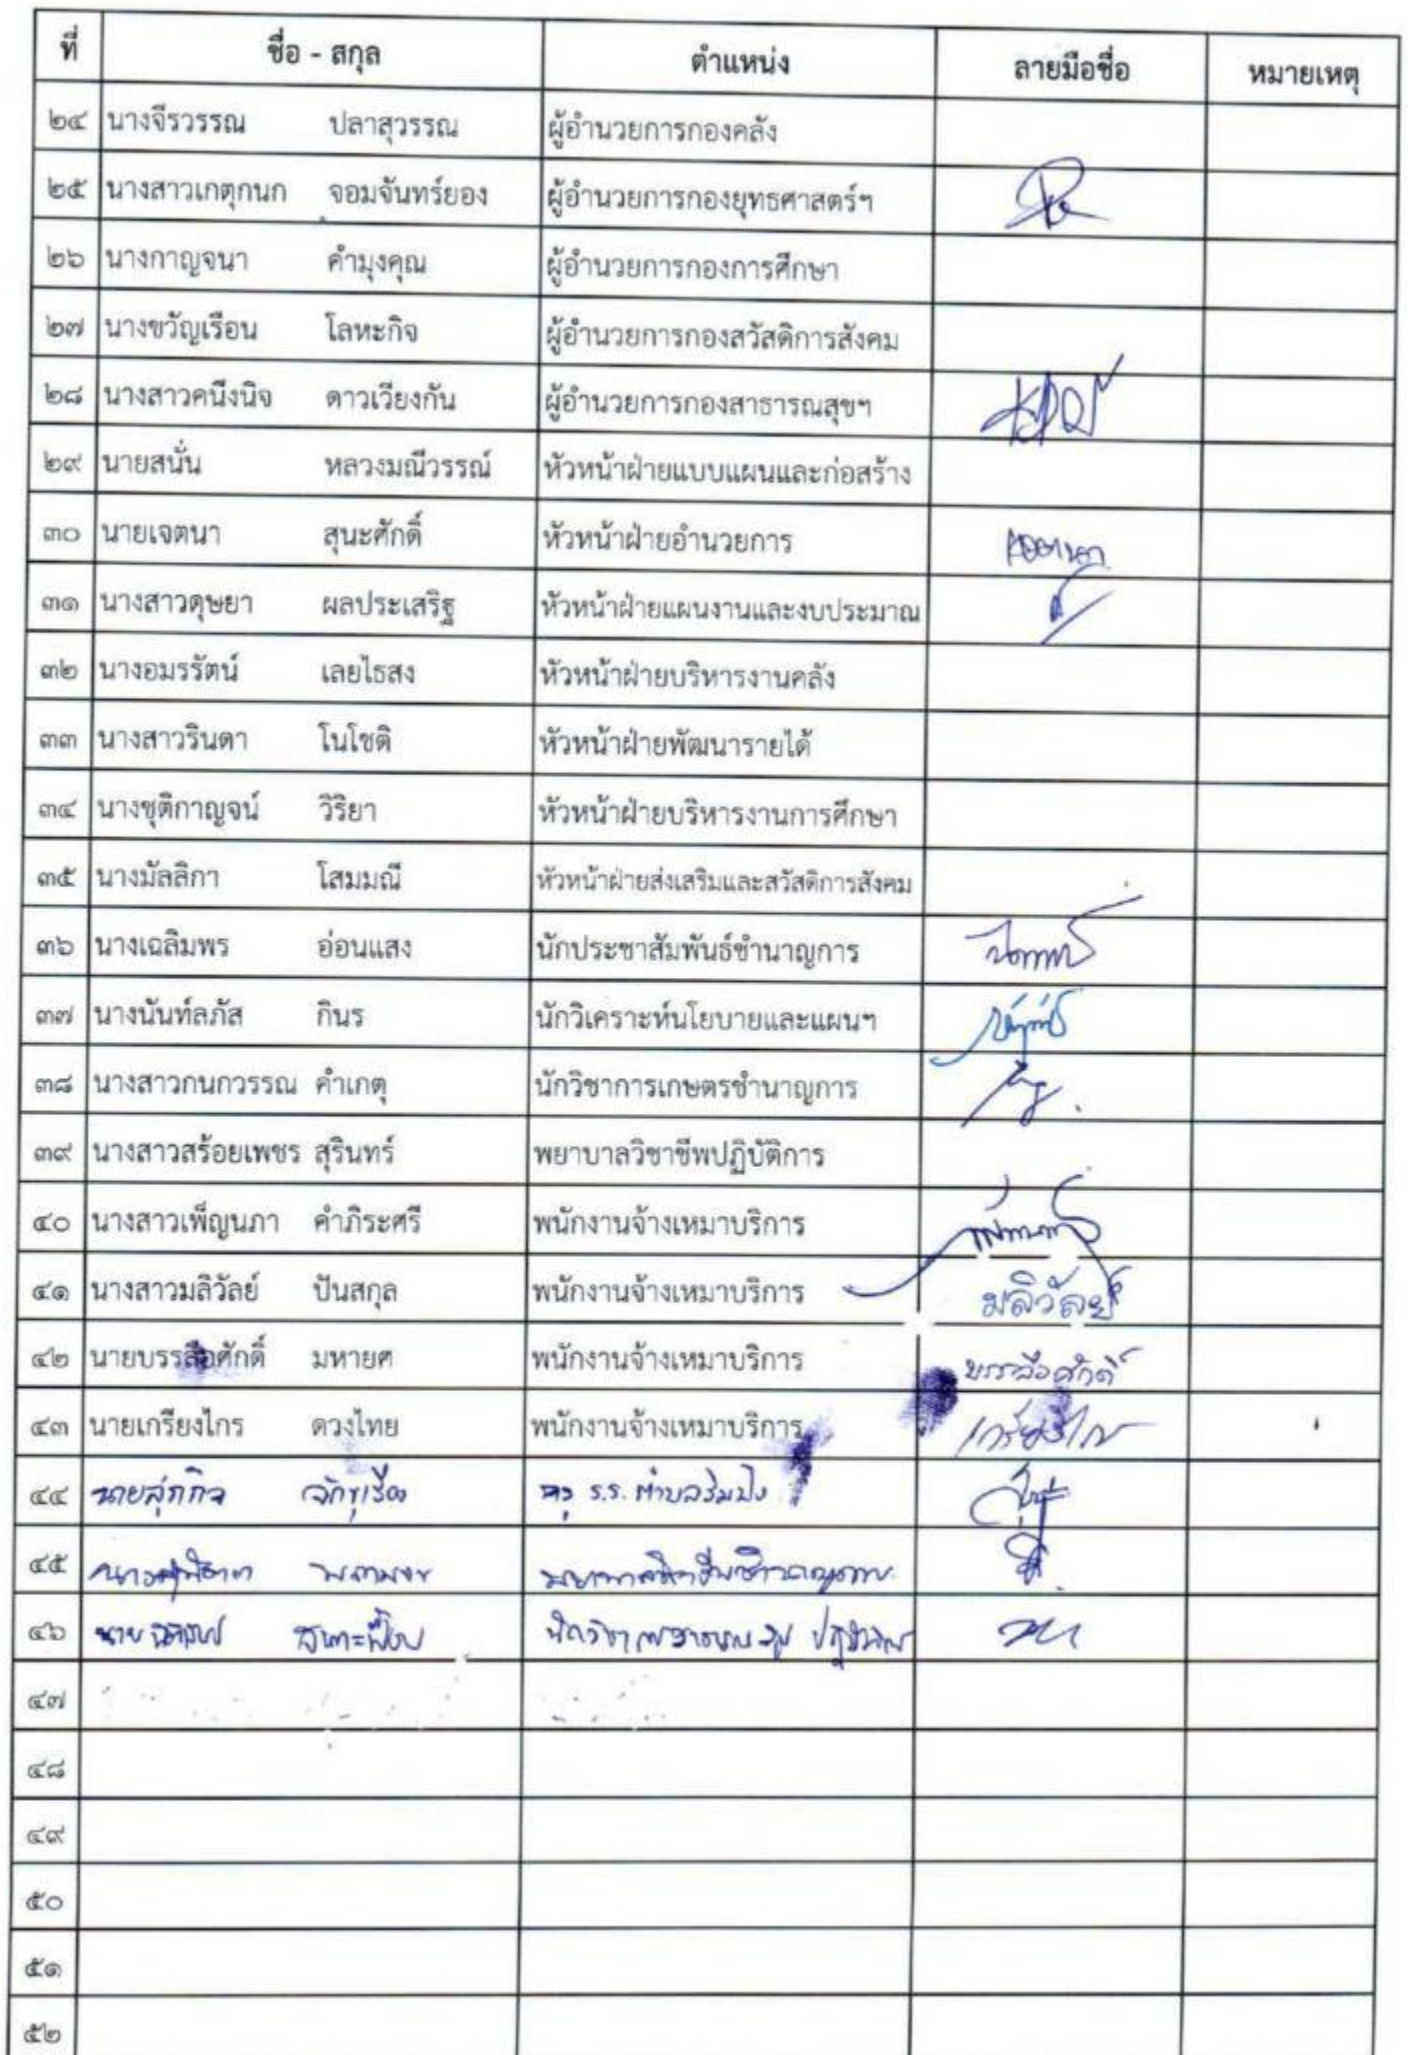 ที่ ชื่อ - สกุล ตำแหน่ง ลายมือชื่อ หมายเหตุ
๒๔ นางจีรวรรณ ปลาสุวรรณ ผู้อำนวยการกองคลัง
๒๕ นางสาวเกตุกนก จอมจันทร์ยอง ผู้อำนวยการกองยุทธศาสตร์ฯ
๒๖ นางกาญจนา คำมุงคุณ ผู้อำนวยการกองการศึกษา
๒๗ นางขวัญเรือน โลหะกิจ ผู้อำนวยการกองสวัสดิการสังคม
๒๘ นางสาวคนึงนิจ ดาวเวียงกัน ผู้อำนวยการกองสาธารณสุขฯ
๒๙ นายสนั่น หลวงมณีวรรณ์ หัวหน้าฝ่ายแบบแผนและก่อสร้าง
๓๐ นายเจตนา สุนะศักดิ์ หัวหน้าฝ่ายอำนวยการ เจตนา
๓๑ นางสาวดุษยา ผลประเสริฐ หัวหน้าฝ่ายแผนงานและงบประมาณ
๓๒ นางอมรรัตน์ เลยไธสง หัวหน้าฝ่ายบริหารงานคลัง
๓๓ นางสาวรินดา โนโชติ หัวหน้าฝ่ายพัฒนารายได้
๓๔ นางชุติกาญจน์ วิริยา หัวหน้าฝ่ายบริหารงานการศึกษา
๓๕ นางมัลลิกา โสมมณี หัวหน้าฝ่ายส่งเสริมและสวัสดิการสังคม
๓๖ นางเฉลิมพร อ่อนแสง นักประชาสัมพันธ์ชำนาญการ
๓๗ นางนันท์ลภัส กินร นักวิเคราะห์นโยบายและแผนฯ
๓๘ นางสาวกนกวรรณ คำเกตุ นักวิชาการเกษตรชำนาญการ
๓๙ นางสาวสร้อยเพชร สุรินทร์ พยาบาลวิชาชีพปฏิบัติการ
๔๐ นางสาวเพ็ญนภา คำภิระศรี พนักงานจ้างเหมาบริการ
๔๑ นางสาวมลิวัลย์ ปันสกุล พนักงานจ้างเหมาบริการ มลิวัลย์
๔๒ นายบรรลือศักดิ์ มหายศ พนักงานจ้างเหมาบริการ บรรลือศักดิ์
๔๓ นายเกรียงไกร ดวงไทย พนักงานจ้างเหมาบริการ เกรียงไกร
๔๔ ร.ร. ตำบลริมปิง
๔๕
๔๖ นาย
๔๗
๔๘
๔๙
๕๐
๕๑
๕๒